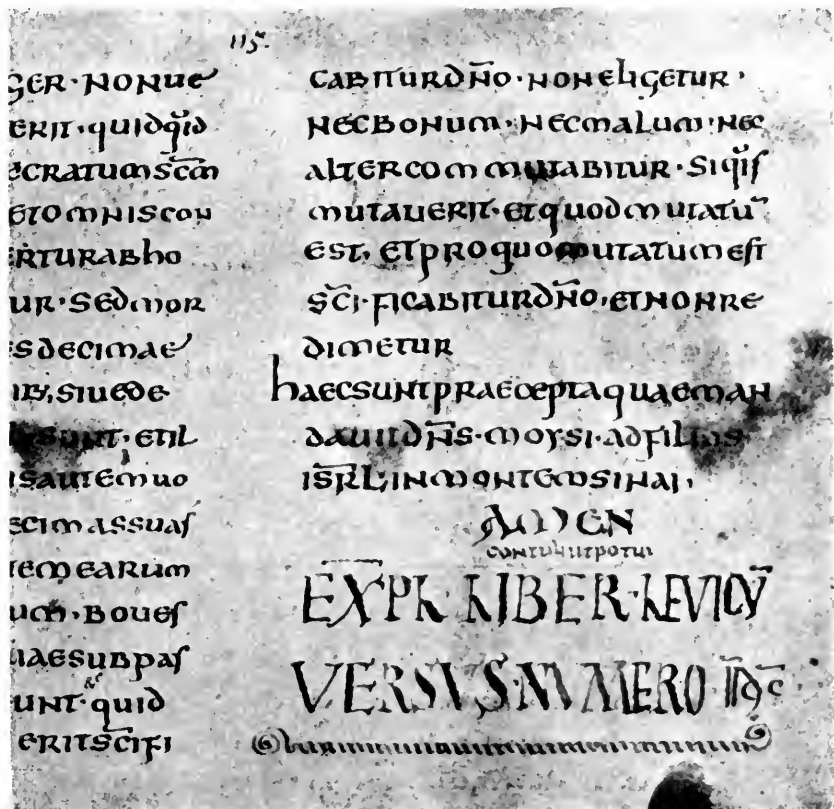 115.
GER·NONUE
ERIT·QUIDQID
ECRATUMSC̅M
ETOMNISCON
ERTURABHO
UR·SEDMOR
SDECIMAE
IB;SIUEDE
SUNT·ETIL
ISAUTEMUO
ECIMASSUAS
TEMEARUM
UM·BOUES
UAESUBPAS
UNT·QUID
ERITSC̅IFI
CABITURDN̅O·NONELIGETUR·
NECBONUM·NECMALUM·NEC
ALTERCOMMUTABITUR·SIQIS
MUTAUERIT·ETQUODMUTATU̅
EST, ETPROQUOMUTATUMEST
SC̅I·FICABITURDN̅O,ETNONRE
DIMETUR
HAECSUNTPRAECEPTAQUAEMAN
DAUITDN̅S·MOYSI·ADFILIOS
ISR̅L,INMONTEMSINAI,
AMEN
CONTULIUTPOTUI
EXPL·LIBER·LEVICỸ
VERSVS·NVMERO·